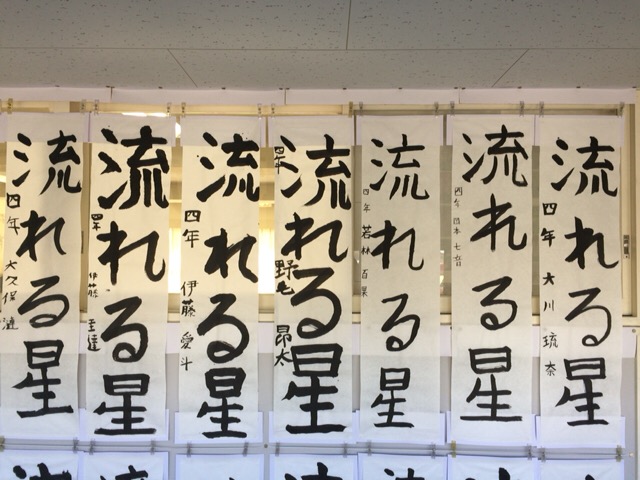 流れる星
四年 大川 琉奈
流れる星
四年 七音
流れる星
四年 若林 百果
流れる星
四年 野 昂太
流れる星
四年 伊藤 愛斗
流れる星
四年 伊藤 圭達
流れる星
四年 大久保 漣